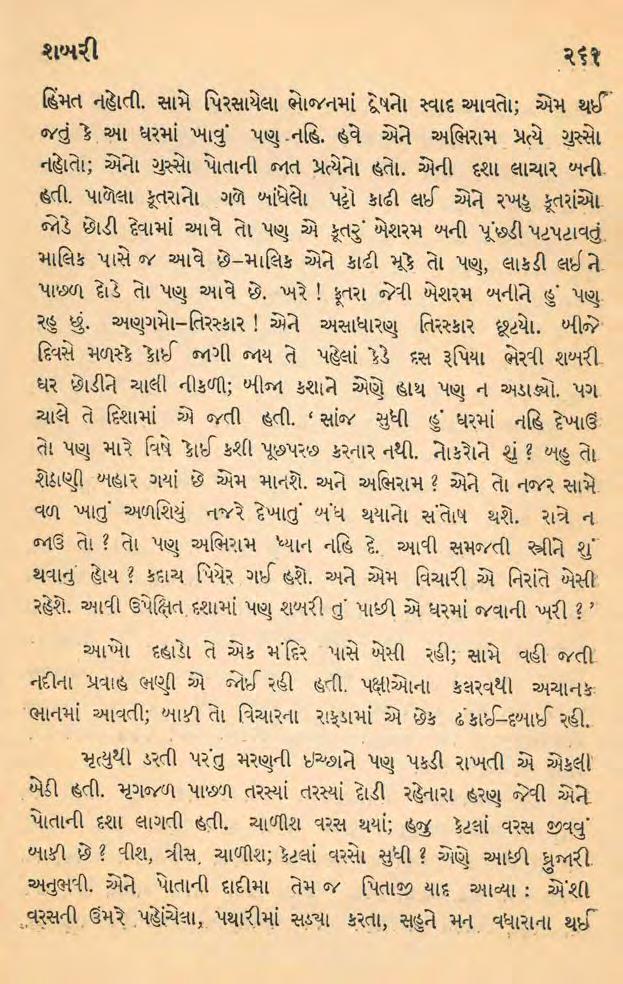 શબરી ૨૬૧
હિંમત નહોતી. સામે પિરસાયેલા ભોજનમાં દ્વેષનો સ્વાદ આવતો; એમ થઈ
જતું કે આ ઘરમાં ખાવું પણ નહિ. હવે એને અભિરામ પ્રત્યે ગુસ્સો
નહોતો; એનો ગુસ્સો પોતાની જાત પ્રત્યેનો હતો. એની દશા લાચાર બની
હતી. પાળેલા કૂતરાનો ગળે બાંધેલો પટ્ટો કાઢી લઈ એને રખડુ કૂતરાંઓ
જોડે છોડી દેવામાં આવે તો પણ એ કૂતરું બેશરમ બની પૂંછડી પટપટાવતું
માલિક પાસે જ આવે છે–માલિક એને કાઢી મૂકે તો પણ, લાકડી લઈને
પાછળ દોડે તો પણ આવે છે. ખરે ! કૂતરા જેવી બેશરમ બનીને હું પણ
રહું છું. અણગમો–તિરસ્કાર ! એને અસાધારણ તિરસ્કાર છૂટ્યો. બીજે
દિવસે મળસ્કે કોઈ જાગી જાય તે પહેલાં કેડે દસ રૂપિયા ભેરવી શબરી
ઘર છોડીને ચાલી નીકળી; બીજા કશાને એણે હાથ પણ ન અડાડ્યો. પગ
ચાલે તે દિશામાં એ જતી હતી. ‘ સાંજ સુધી હું ઘરમાં નહિ દેખાઉં
તો પણ મારે વિષે કોઈ કશી પૂછપરછ કરનાર નથી. નોકરોને શું ? બહુ તો
શેઠાણી બહાર ગયાં છે એમ માનશે. અને અભિરામ ? એને તો નજર સામે
વળ ખાતું અળશિયું નજરે દેખાતું બંધ થયાનો સંતોષ થશે. રાત્રે ન
જાઉં તો ? તો પણ અભિરામ ધ્યાન નહિ દે. આવી સમજતી સ્ત્રીને શું
થવાનું હોય ? કદાચ પિયેર ગઈ હશે. અને એમ વિચારી એ નિરાંતે બેસી
રહેશે. આવી ઉપેક્ષિત દશામાં પણ શબરી તું પાછી એ ઘરમાં જવાની ખરી ? ’
આખો દહાડો તે એક મંદિર પાસે બેસી રહી; સામે વહી જતી
નદીના પ્રવાહ ભણી એ જોઈ રહી હતી. પક્ષીઓના કલરવથી અચાનક
ભાનમાં આવતી; બાકી તો વિચારના રાફડામાં એ છેક ઢંકાઈ–દબાઈ રહી.
મૃત્યુથી ડરતી પરંતુ મરણની ઇચ્છાને પણ પકડી રાખતી એ એકલી
બેઠી હતી. મૃગજળ પાછળ તરસ્યાં તરસ્યાં દોડી રહેનારા હરણ જેવી એને
પોતાની દશા લાગતી હતી. ચાળીશ વરસ થયાં; હજુ કેટલાં વરસ જીવવું
બાકી છે ? વીશ, ત્રીસ, ચાળીશ; કેટલાં વરસો સુધી ? એણે આછી ધ્રુજારી
અનુભવી. એને પોતાની દાદીમા તેમ જ પિતાજી યાદ આવ્યા : એંશી
વરસની ઉંમરે પહોંચેલા, પથારીમાં સડ્યા કરતા, સહુને મન વધારાના થઈ